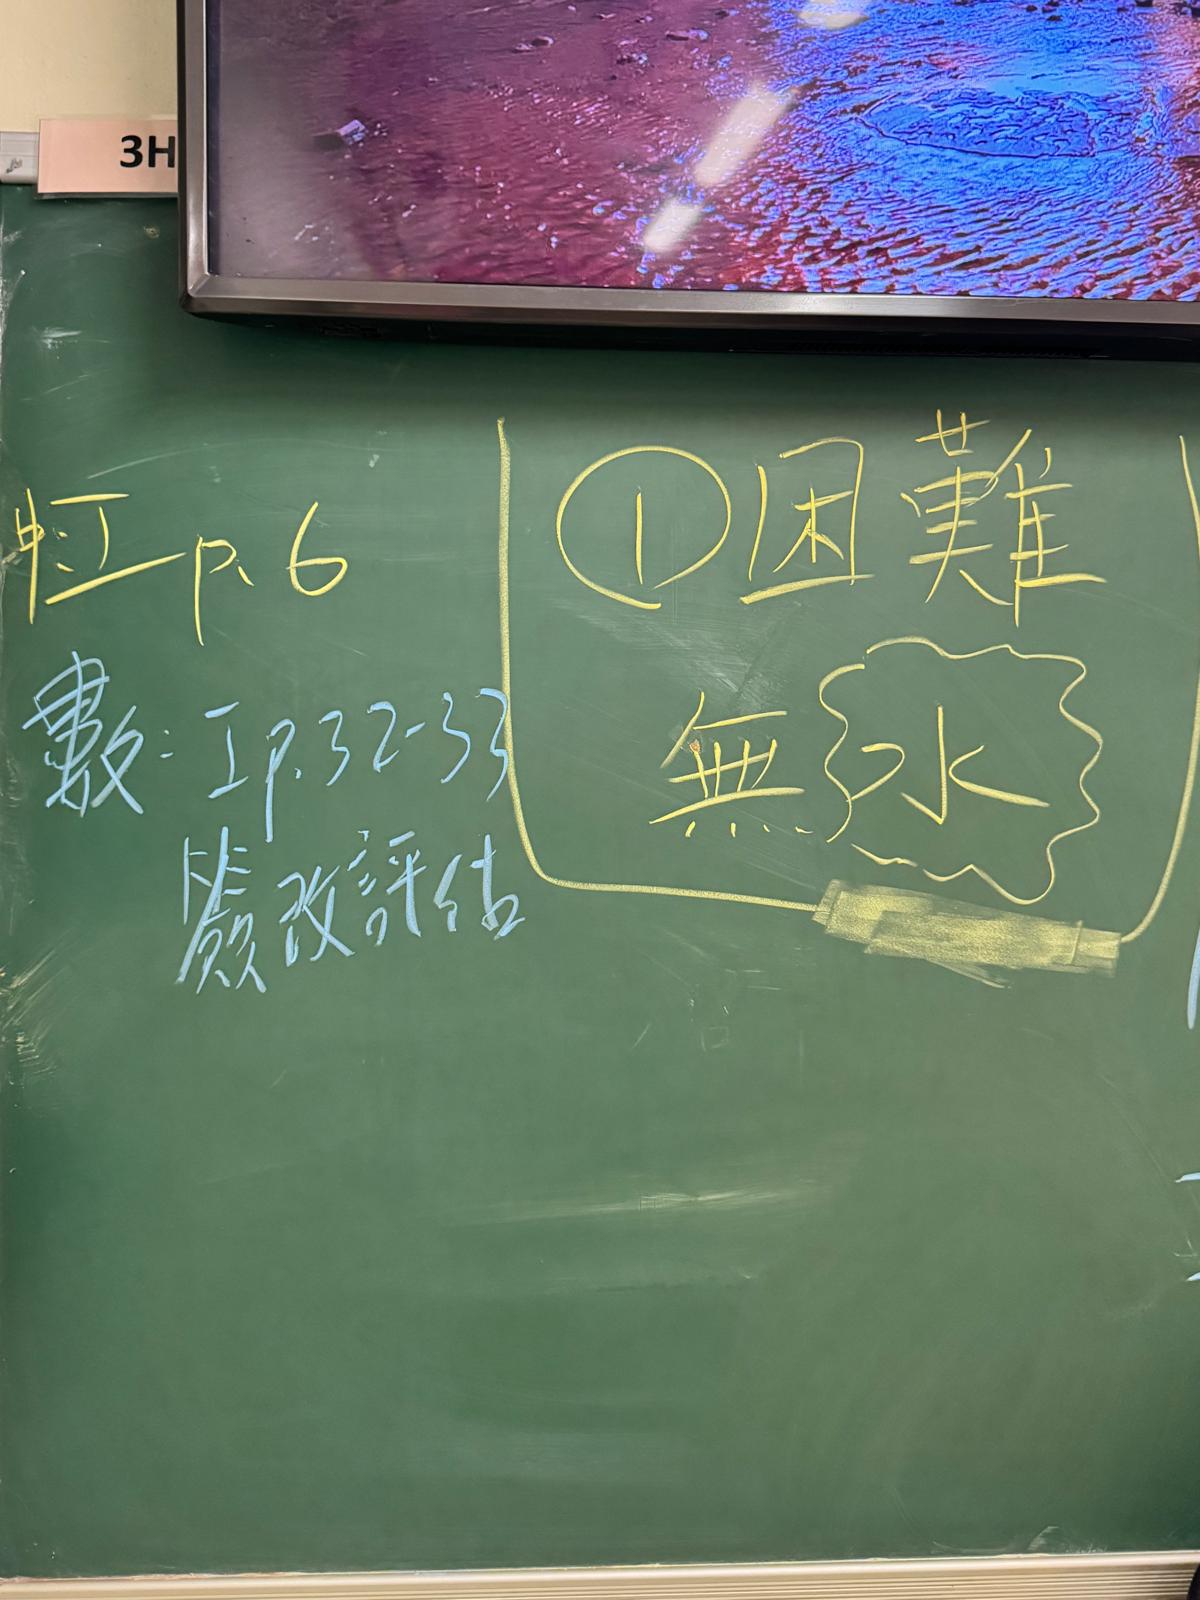 3H
中:工 p.6
數:工p.32-33
簽改評估
① 困難
無水